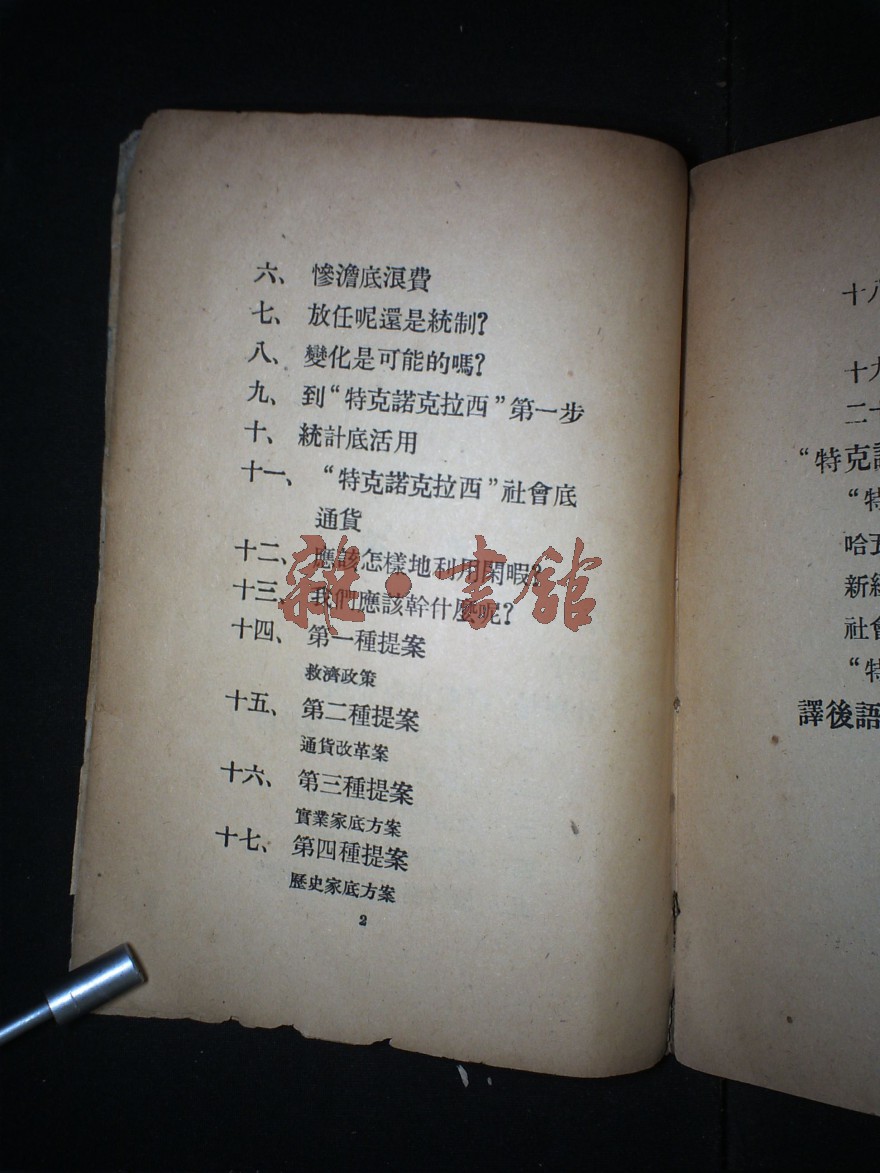 六、 慘澹底浪費
七、 放任呢還是統制?
八、 變化是可能的嗎?
九、 到“特克諾克拉西”第一步
十、 統計底活用
十一、 “特克諾克拉西”社會底
通貨
十二、 應該怎樣地利用閑暇?
十三、 我們應該幹什麼呢?
十四、 第一種提案
救濟政策
十五、 第二種提案
通貨改革案
十六、 第三種提案
實業家底方案
十七、 第四種提案
歷史家底方案
2
雜·書館
十八
十九
二十
“特克諾
“特
哈
新經
社會
“特
譯後語